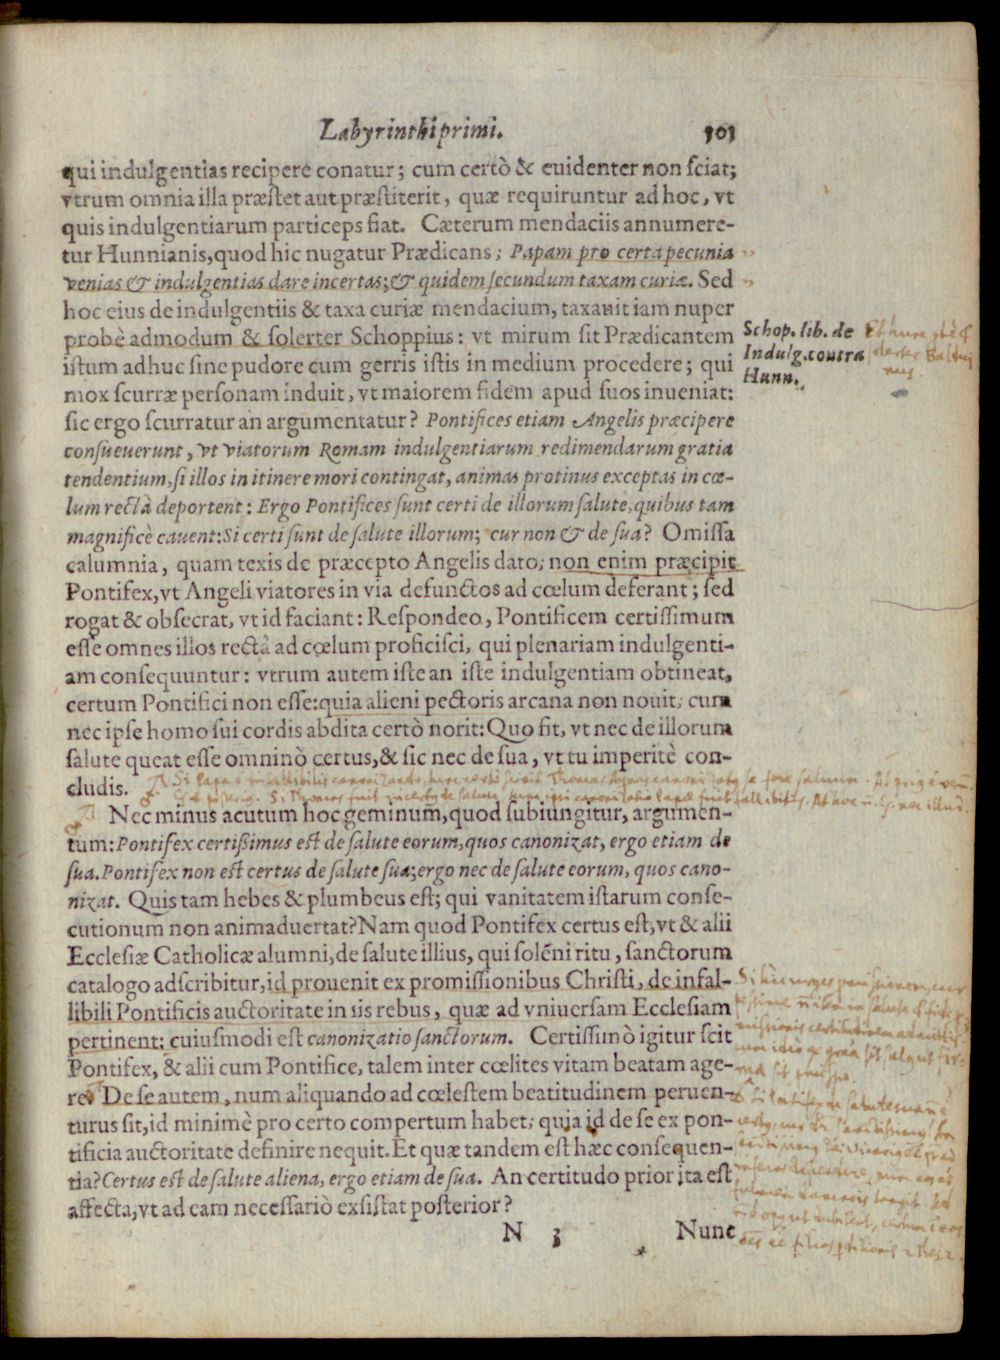 Labyrinthi primi. 101
qui indulgentias recipere conatur; cum certò & euidenter non sciat;
vtrum omnia illa præstet aut præstiterit, quæ requiruntur ad hoc, vt
quis indulgentiarum particeps fiat. Cæterum mendaciis annumere-
tur Hunnianis, quod hic nugatur Prædicans; Papam pro certa pecunia
venias & indulgentias dare incertas; & quidem secundum taxam curiæ. Sed
hoc eius de indulgentiis & taxa curiæ mendacium, taxauit iam nuper
probè admodum & solerter Schoppius: vt mirum sit Prædicantem
Schop. lib. de
Indulg. contra
Hunn.
istum adhuc sine pudore cum gerris istis in medium procedere; qui
mox scurræ personam induit, vt maiorem fidem apud suos inueniat:
sic ergo scurratur an argumentatur? Pontifices etiam Angelis præcipere
consueuerunt, vt viatorum Romam indulgentiarum redimendarum gratia
tendentium, si illos in itinere mori contingat, animas protinus exceptas in cœ-
lum rectà deportent: Ergo Pontifices sunt certi de illorum salute, quibus tam
magnificè cauent: Si certi sunt de salute illorum; cur non & de sua? Omissa
calumnia, quam texis de præcepto Angelis dato; non enim præcipit
Pontifex, vt Angeli viatores in via defunctos ad cœlum deferant; sed
rogat & obsecrat, vt id faciant: Respondeo, Pontificem certissimum
esse omnes illos rectà ad cœlum proficisci, qui plenariam indulgenti-
am consequuntur: vtrum autem iste an iste indulgentiam obtineat,
certum Pontifici non esse: quia alieni pectoris arcana non nouit; cum
nec ipse homo sui cordis abdita certò norit: Quo fit, vt nec de illorum
salute queat esse omninò certus, & sic nec de sua, vt tu imperitè con-
cludis.
Nec minus acutum hoc geminum, quod subiungitur, argumen-
tum: Pontifex certißimus est de salute eorum, quos canonizat, ergo etiam de
sua. Pontifex non est certus de salute sua; ergo nec de salute eorum, quos cano-
nizat. Quis tam hebes & plumbeus est; qui vanitatem istarum conse-
cutionum non animaduertat? Nam quod Pontifex certus est, vt & alii
Ecclesiæ Catholicæ alumni, de salute illius, qui solẽni ritu, sanctorum
catalogo adscribitur, id prouenit ex promissionibus Christi, de infal-
libili Pontificis auctoritate in iis rebus, quæ ad vniuersam Ecclesiam
pertinent; cuiusmodi est canonizatio sanctorum. Certissimò igitur scit
Pontifex, & alii cum Pontifice, talem inter cœlites vitam beatam age-
re. De se autem, num aliquando ad cœlestem beatitudinem peruen-
turus sit, id minimè pro certo compertum habet; quia id de se ex pon-
tificia auctoritate definire nequit. Et quæ tandem est hæc consequen-
tia? Certus est de salute aliena, ergo etiam de sua. An certitudo prior ita est
affecta, vt ad eam necessariò exsistat posterior?
N 3 Nunc